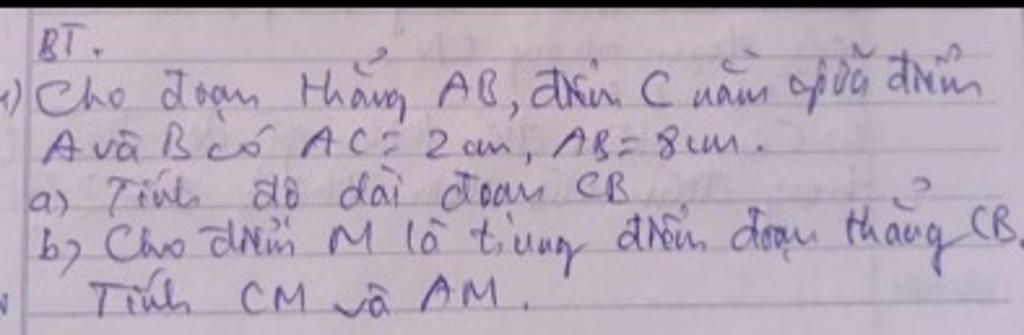 BT.
1) Cho đoạn thẳng AB, điểm C nằm giữa điểm
A và B có AC = 2 cm, AB = 8 cm.
a) Tính độ dài đoạn CB
b) Cho điểm M là trung điểm đoạn thẳng CB.
Tính CM và AM.